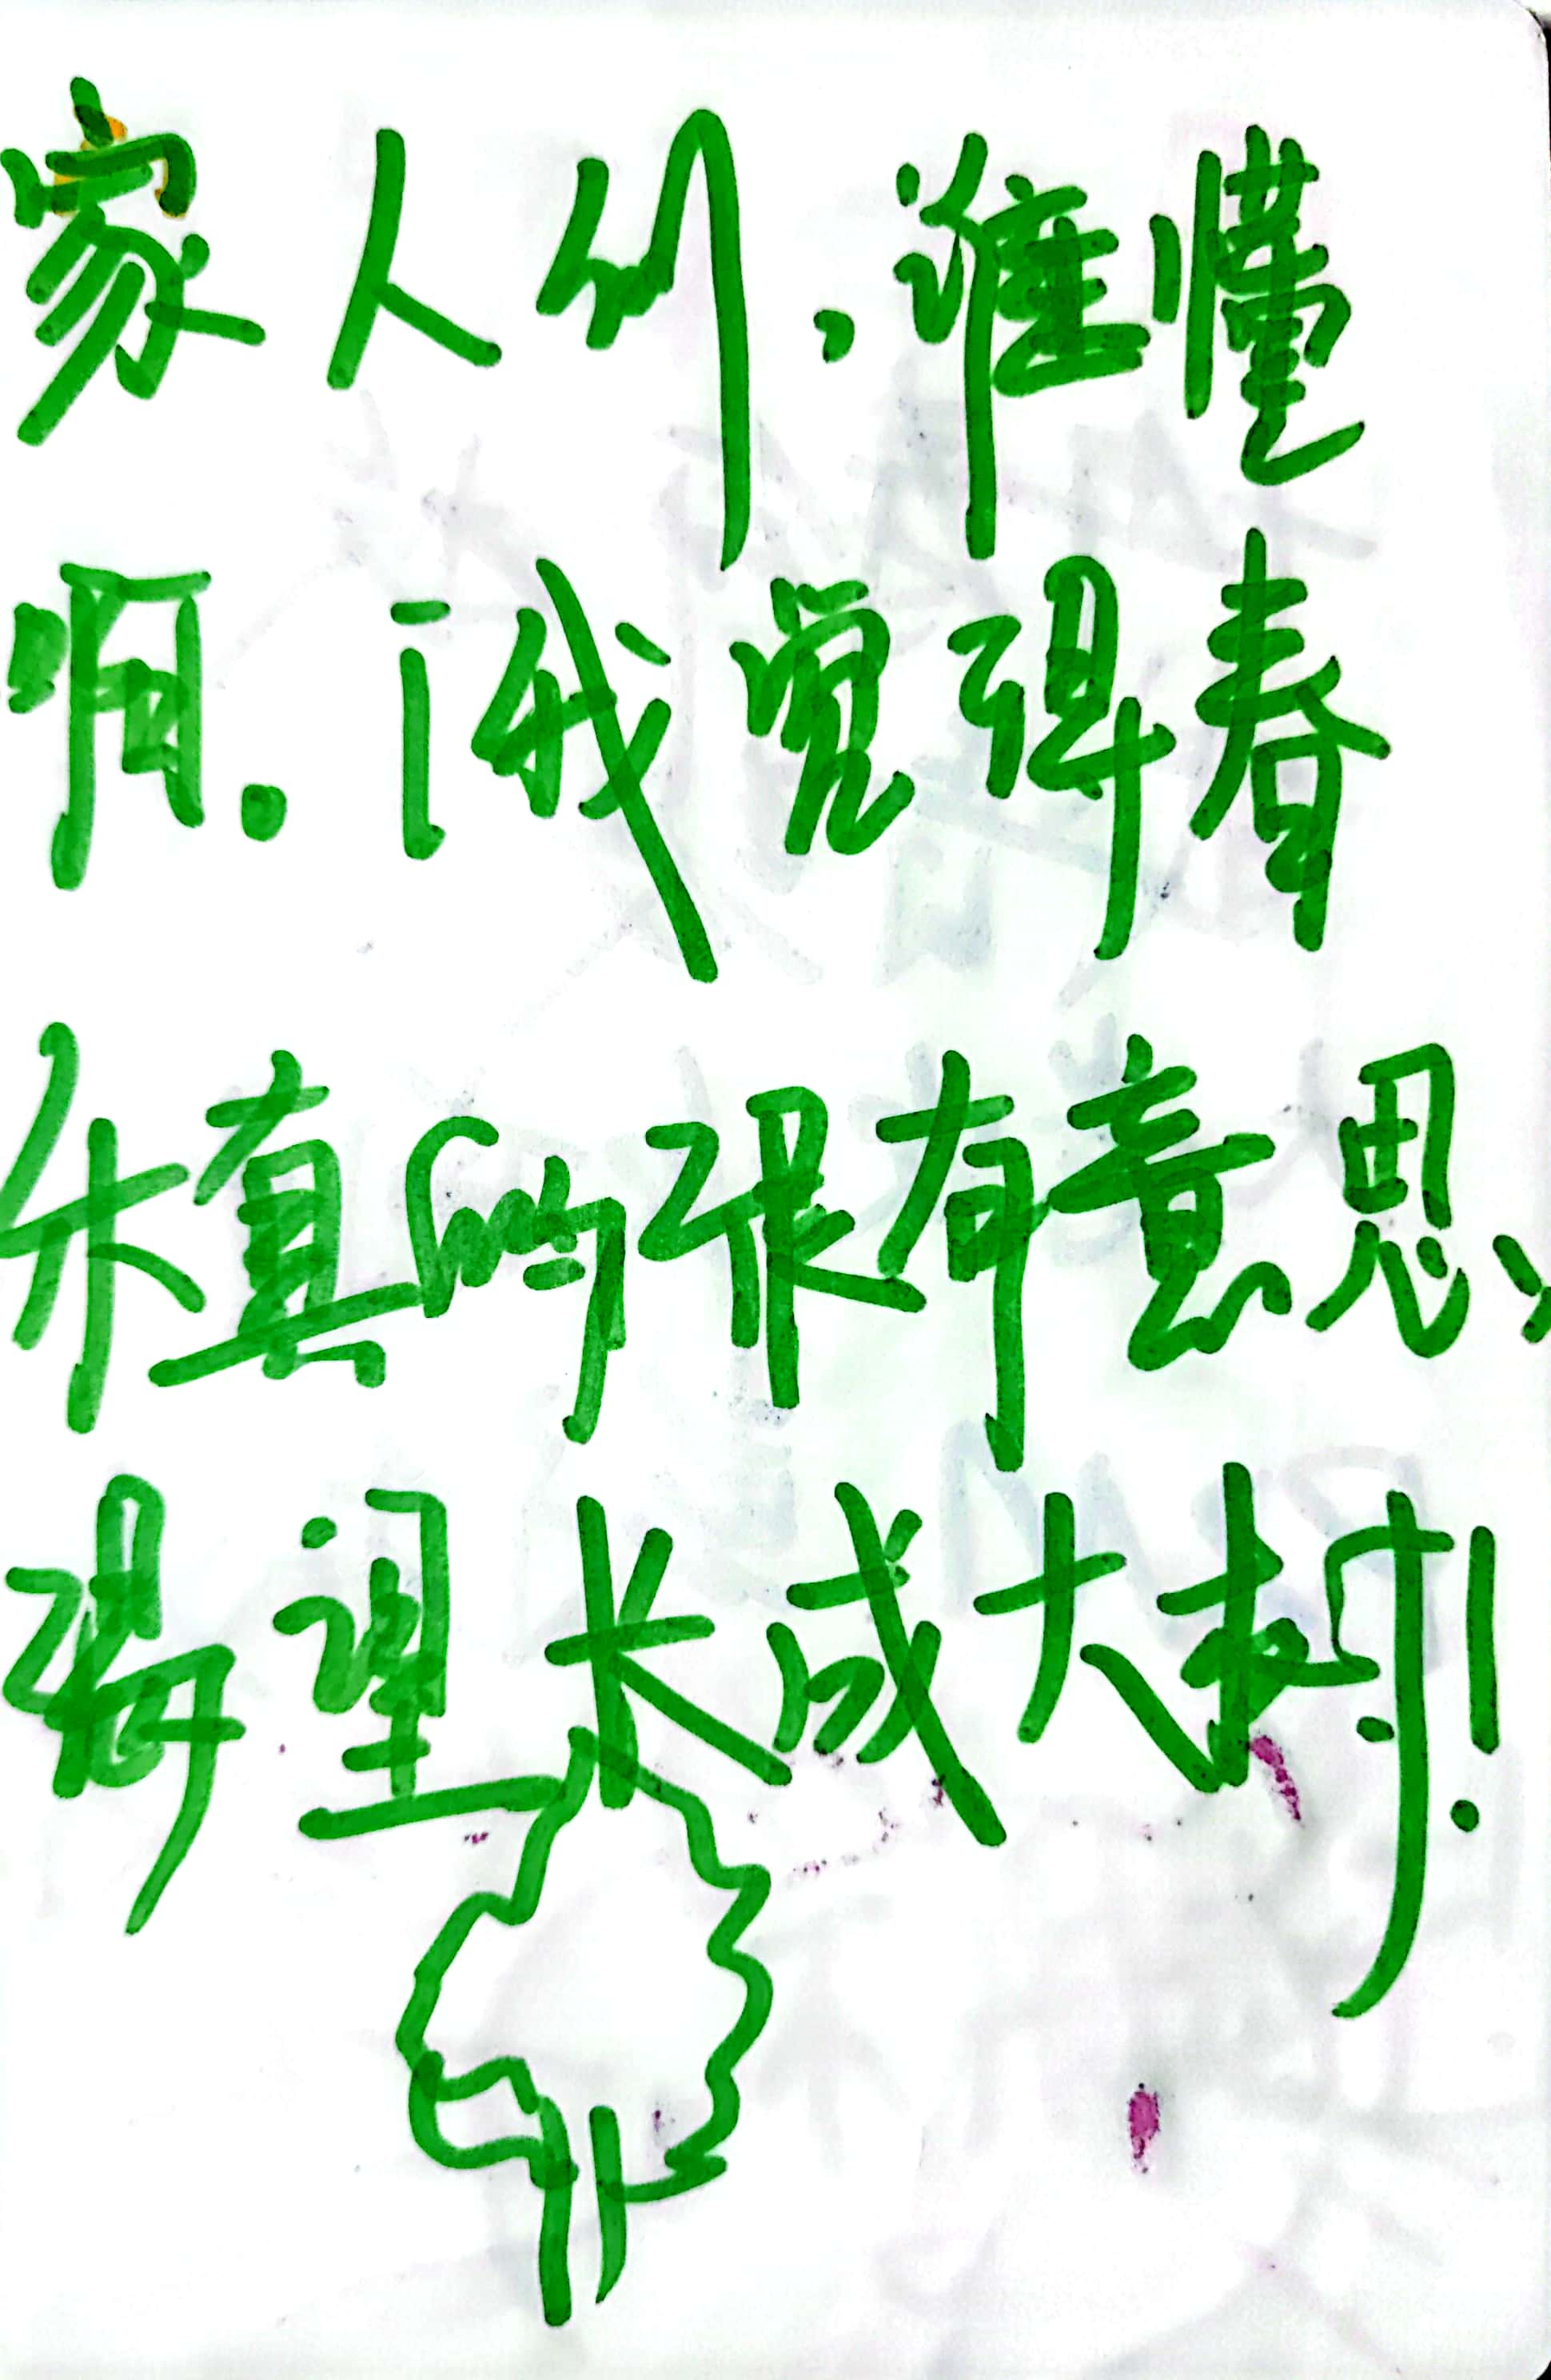 家人们，谁懂
啊。¡我觉得春
休真的很有意思，
渴望长成大树！